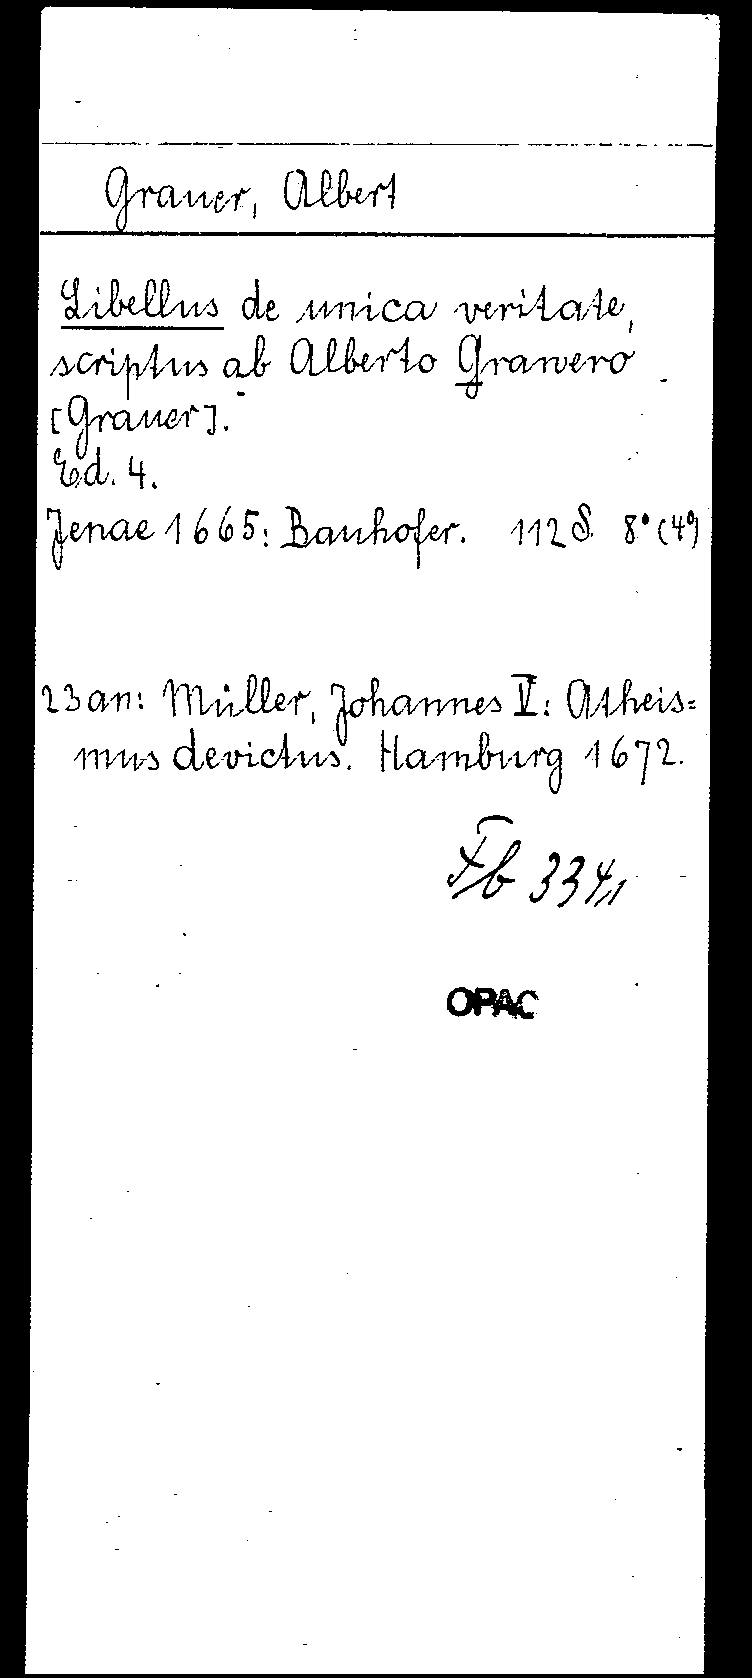 Grauer, Albert
Libellus de unica veritate,
scriptus ab Alberto Grawero
[Grauer].
Ed. 4.
Jenae 1665: Bauhofer. 112 S. 8° (4°)
23 an: Müller, Johannes V: Atheis=
mus devictus. Hamburg 1672.
Fb 334,1
OPAC